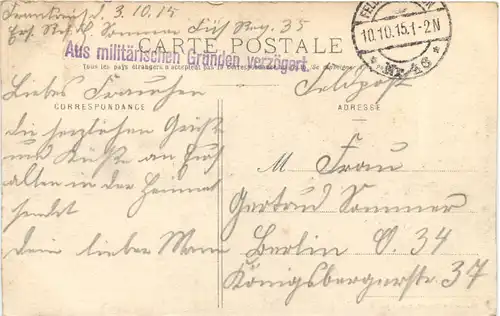 Frankreich d. 3.10.15
Ers. Res. A. Sommer Füs Reg. 35
CARTE POSTALE
Aus militärischen Gründen verzögert.
Tous les pays étrangers n'acceptent pas la Correspondance
Feldpost
10.10.15.1-2N
Nr. 46
CORRESPONDANCE
ADRESSE
Liebes Frauchen
die herzlichen Grüße
und Küsse an Euch
allen in der Heimat
sendet
Dein lieber Mann
M Frau
Gertrud Sommer
Berlin O. 34
Königsbergerstr 37